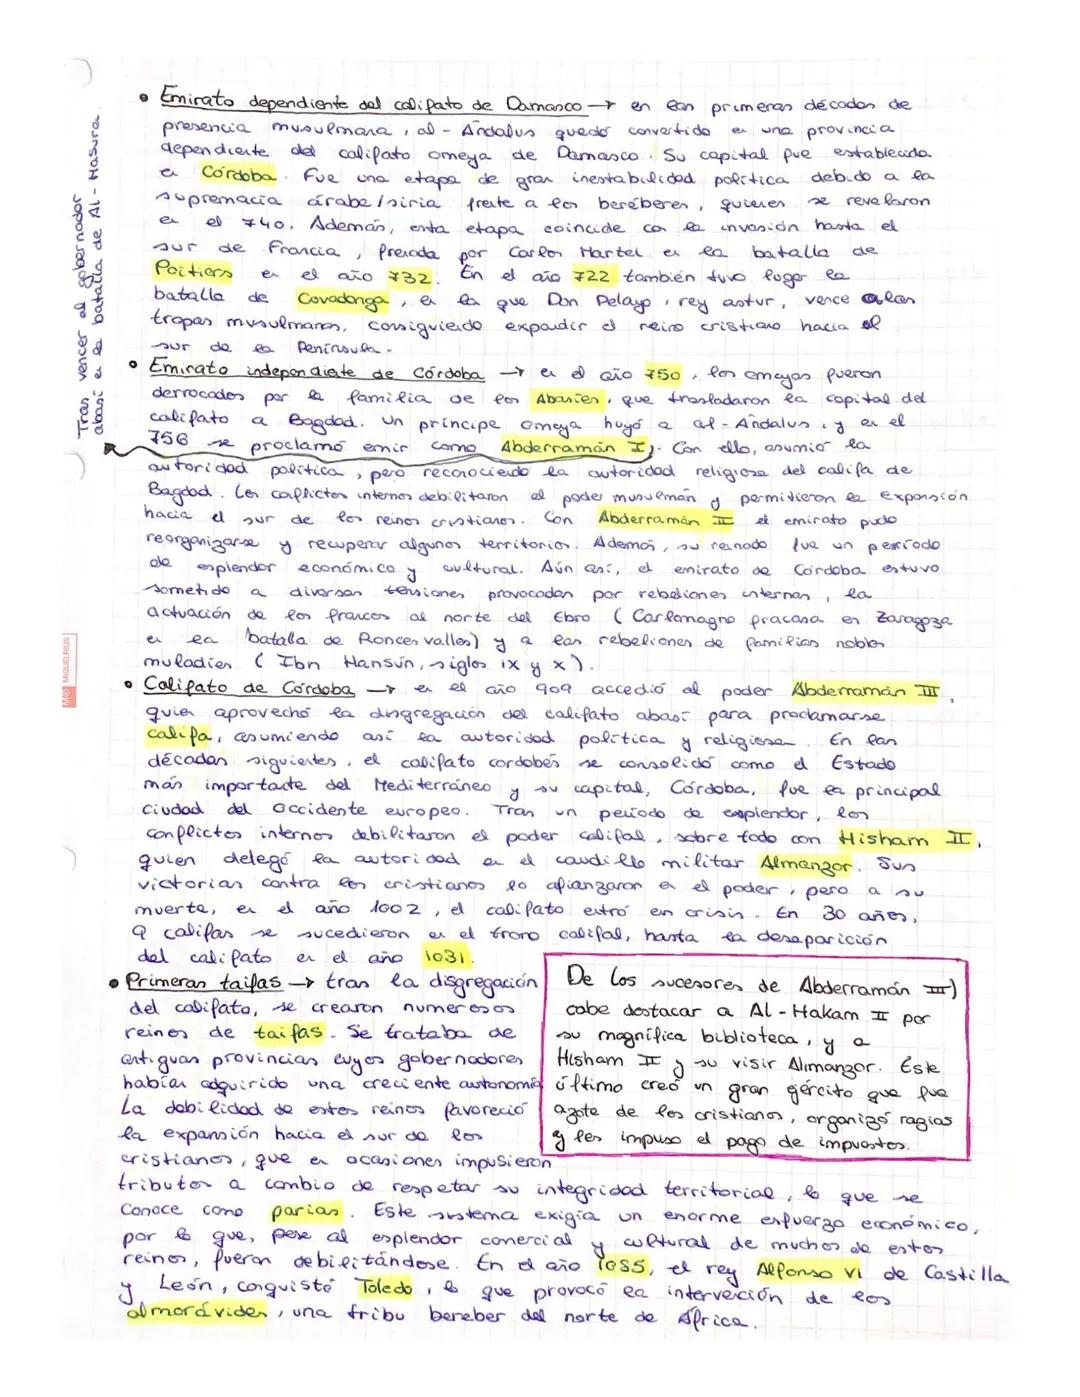 • Emirato dependiente del califato de Damasco → en las primeras décadas de
presencia musulmana, al-Andalus quedó convertido en una provincia
dependiente del califato omeya de Damasco. Su capital fue establecida
en Córdoba. Fue una etapa de gran inestabilidad política debido a la
supremacía árabe/siria frente a los beréberes, quienes se revelaron
en el 740. Además, esta etapa coincide con la invasión hasta el
sur de Francia, frenada por Carlos Martel en la batalla de
Poitiers en el año 732. En el año 722 también tuvo lugar la
batalla de Covadonga, en la que Don Pelayo, rey astur, vence a las
tropas musulmanas, consiguiendo expandir el reino cristiano hacia el
sur de la Península.
• Emirato independiente de Córdoba → en el año 750, los omeyas fueron
derrocados por la familia de los Abasíes, que trasladaron la capital del
califato a Bagdad. Un príncipe omeya huyó a al-Andalus, y en el
756 se proclamó emir como Abderramán I. Con ello, asumió la
autoridad política, pero reconociendo la autoridad religiosa del califa de
Bagdad. Los conflictos internos debilitaron el poder musulmán y permitieron la expansión
hacia el sur de los reinos cristianos. Con Abderramán II el emirato pudo
reorganizarse y recuperar algunos territorios. Ademas, su reinado fue un período
de esplendor económico y cultural. Aún así, el emirato de Córdoba estuvo
sometido a diversas tensiones provocadas por rebeliones internas, la
actuación de los francos al norte del Ebro (Carlomagno fracasa en Zaragoza
en la batalla de Roncesvalles) y a las rebeliones de familias nobles
muladíes (Ibn Hansún, siglos IX y X).
• Califato de Córdoba → en el año 909 accedió al poder Abderramán III,
quien aprovechó la disgregación del califato abasí para proclamarse
califa, asumiendo así la autoridad política y religiosa. En las
décadas siguientes, el califato cordobés se consolidó como el Estado
más importante del Mediterráneo y su capital, Córdoba, fue la principal
ciudad del Occidente europeo. Tras un período de esplendor, los
conflictos internos debilitaron el poder califal, sobre todo con Hisham II,
quien delegó la autoridad en el caudillo militar Almanzor. Sus
victorias contra los cristianos lo afianzaron en el poder, pero a su
muerte, en el año 1002, el califato entró en crisis. En 30 años,
9 califas se sucedieron en el trono califal, hasta la desaparición
del califato en el año 1031.
• Primeras taifas → tras la disgregación
del califato, se crearon numerosos
reinos de taifas. Se trataba de
antiguas provincias cuyos gobernadores
habían adquirido una creciente autonomía
La debilidad de estos reinos favoreció
la expansión hacia el sur de los
cristianos, que en ocasiones impusieron
tributos a cambio de respetar su integridad territorial, lo que se
conoce como parias. Este sistema exigía un enorme esfuerzo económico,
por lo que, pese al esplendor comercial y cultural de muchos de estos
reinos, fueron debilitándose. En el año 1085, el rey Alfonso VI de Castilla
y León, conquistó Toledo, lo que provocó la intervención de los
almorávides, una tribu bereber del norte de África.
De los sucesores de Abderramán III)
cabe destacar a Al-Hakam II por
su magnífica biblioteca, y a
Hisham II y su visir Almanzor. Este
último creó un gran ejército que fue
azote de los cristianos, organizó razias
y les impuso el pago de impuestos.
Tras vencer al gobernador
abasí en la batalla de Al-Masura.
MIQUELRIUS